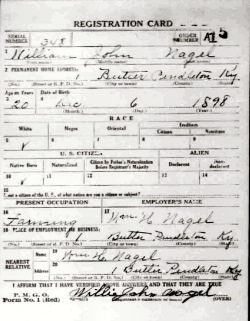 REGISTRATION CARD
SERIAL NUMBER 348 ORDER NUMBER
William John Nagel
2 PERMANENT HOME ADDRESS:
1 Butler Pendleton Ky
(No.) (Street or R. F. D. No.) (City or town) (County) (State)
Age in Years Date of Birth
20 Dec 6 1898
RACE
White Negro Oriental Indian
Citizen Noncitizen
U. S. CITIZEN ALIEN
Native Born Naturalized Citizen by Father's Naturalization Before Registrant's Majority Declarant Non-declarant
If not a citizen of the U. S., of what nation are you a citizen or subject?
PRESENT OCCUPATION EMPLOYER'S NAME
Farming Wm H Nagel
PLACE OF EMPLOYMENT OR BUSINESS:
Butler Pendleton Ky
(No.) (Street or R. F. D. No.) (City or town) (County) (State)
NEAREST RELATIVE
Name Wm H. Nagel
Address 1 Butler Pendleton Ky
(No.) (Street or R. F. D. No.) (City or town) (County) (State)
I AFFIRM THAT I HAVE VERIFIED ABOVE ANSWERS AND THAT THEY ARE TRUE
P. M. G. O.
Form No. 1 (Red) Willie John Nagel (OVER)